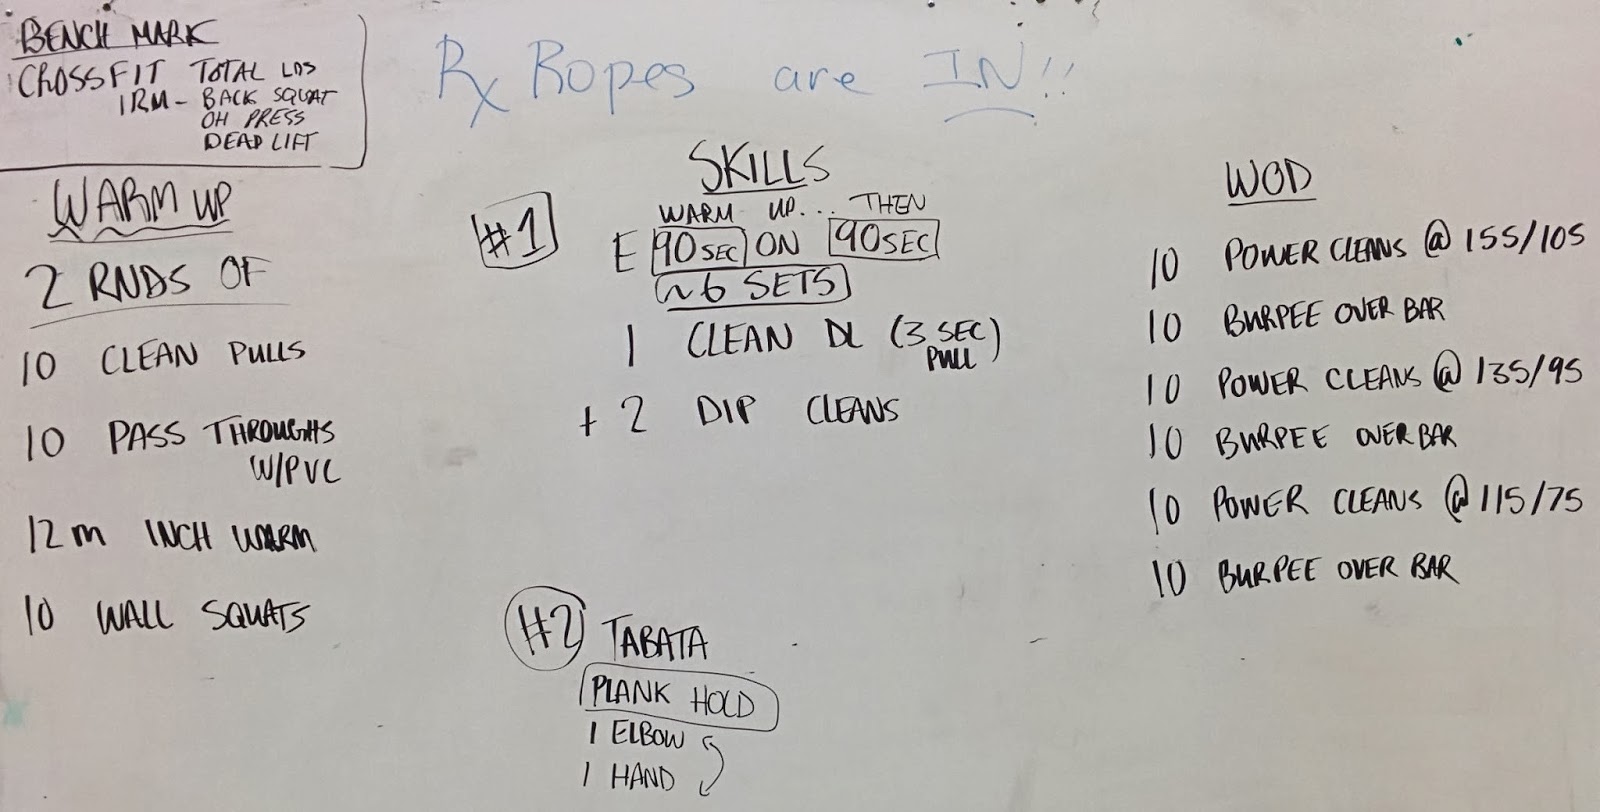 BENCH MARK
CROSSFIT TOTAL LBS
1RM - BACK SQUAT
OH PRESS
DEAD LIFT
Rx Ropes are IN!!
WARM UP
2 RNDS OF
10 CLEAN PULLS
10 PASS THROUGHS
W/PVC
12m INCH WARM
10 WALL SQUATS
SKILLS
#1
WARM UP... THEN
E 90SEC ON 90SEC
~6 SETS
1 CLEAN DL (3 SEC PULL)
+ 2 DIP CLEANS
#2 TABATA
PLANK HOLD
1 ELBOW
1 HAND
WOD
10 POWER CLEANS @ 155/105
10 BURPEE OVER BAR
10 POWER CLEANS @ 135/95
10 BURPEE OVER BAR
10 POWER CLEANS @ 115/75
10 BURPEE OVER BAR